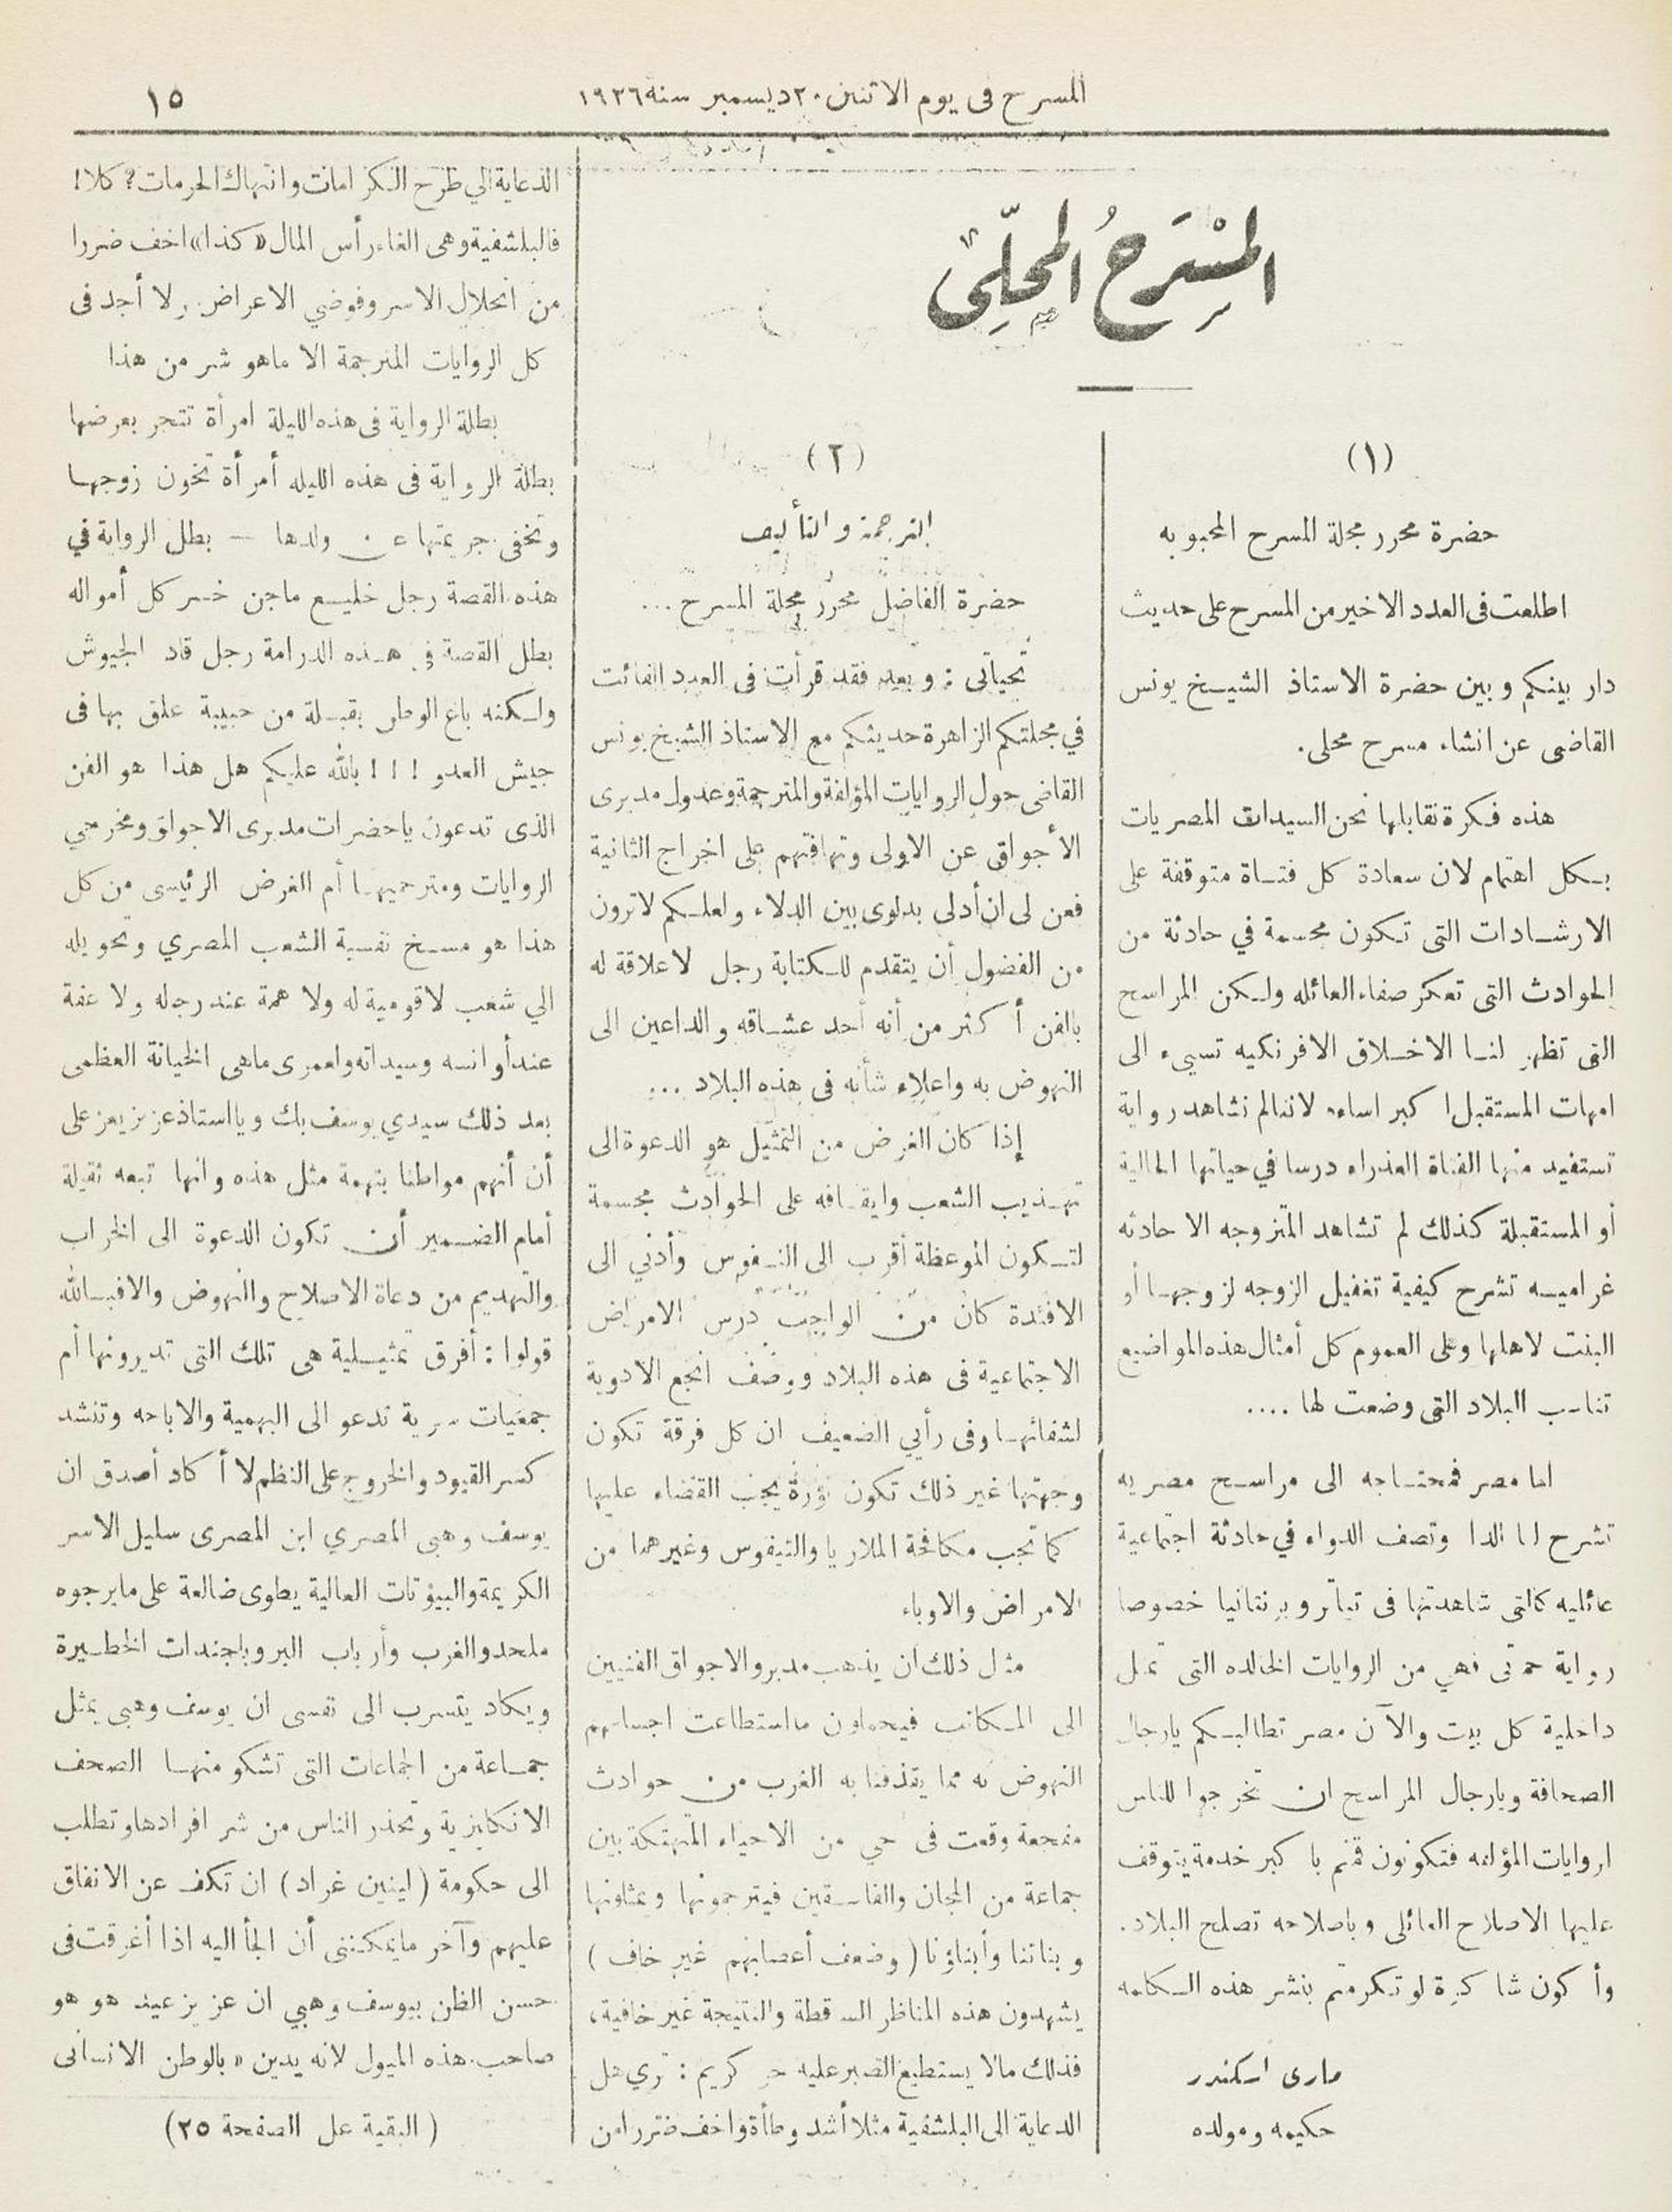 المسرح فى يوم الاثنين ٢٠ ديسمبر سنة ١٩٢٦
١٥
المسرح المحلي
(١)
حضرة محرر مجلة المسرح المحبوبه
اطلعت فى العدد الاخير من المسرح على حديث
دار بينكم وبين حضرة الاستاذ الشيخ يونس
القاضى عن انشاء مسرح محلى.
هذه فكرة نقابلها نحن السيدات المصريات
بكل اهتمام لان سعادة كل فتاة متوقفة على
الارشادات التى تكون مجسمة في حادثة من
الحوادث التى تعكر صفاء العائله ولكن المراسح
التى تظهر لنا الاخلاق الافرنكيه تسيء الى
امهات المستقبل ا كبر اساءه لاننا لم نشاهد رواية
تستفيد منها الفتاة العذراء درسا في حياتها الحالية
أو المستقبلة كذلك لم تشاهد المتزوجه الا حادثه
غراميه تشرح كيفية تغفيل الزوجه لزوجها أو
البنت لاهلها وعلى العموم كل أمثال هذه المواضيع
تناسب البلاد التى وضعت لها ....
اما مصر فمحتاجه الى مراسح مصريه
تشرح لنا الدا وتصف الدواء في حادثة اجتماعية
عائليه كالتى شاهدتها فى تياترو برنتانيا خصوصا
رواية حمتى فهي من الروايات الخالده التى تمثل
داخلية كل بيت والآن مصر تطالبكم يارجال
الصحافة ويارجال المراسح ان تخرجوا للناس
الروايات المؤلفه فتكونون قمتم با كبر خدمة يتوقف
عليها الاصلاح العائلى وباصلاحه تصلح البلاد.
وأ كون شا كرة لو تكرمتم بنشر هذه الكلمه
مارى اسكندر
حكيمه ومولده
(٢)
الترجمة والتأليف
حضرة الفاضل محرر مجلة المسرح ...
تحياتى : وبعد فقد قرأت فى العدد الفائت
في مجلتكم الزاهرة حديثكم مع الاستاذ الشيخ يونس
القاضى حول الروايات المؤلفة والمترجمة وعدول مديرى
الأجواق عن الاولى وتهافتهم على اخراج الثانية
فعن لى ان أدلى بدلوى بين الدلاء ولعلكم لا ترون
من الفضول أن يتقدم للكتابة رجل لا علاقة له
بالفن أ كثر من أنه أحد عشاقه والداعين الى
النهوض به واعلاء شأنه فى هذه البلاد ...
إذا كان الغرض من التمثيل هو الدعوة الى
تهذيب الشعب وايقافه على الحوادث مجسمة
لتكون الموعظة أقرب الى النفوس وأدنى الى
الافئدة كان من الواجب درس الامراض
الاجتماعية فى هذه البلاد ووصف انجع الادوية
لشفائها وفى رأيي الضعيف ان كل فرقة تكون
وجهتها غير ذلك تكون بؤرة يجب القضاء عليها
كما تجب مكافحة الملاريا والتيفوس وغيرهما من
الامراض والاوباء
مثل ذلك ان يذهب مديرو الاجواق الفنيين
الى المكاتب فيحملون ما استطاعت اجسامهم
النهوض به مما يقذفنا به الغرب من حوادث
مفجعة وقعت فى حي من الاحياء المتهتكة بين
جماعة من المجان والفاسقين فيترجمونها ويمثلونها
وبناتنا وأبناؤنا (وضعف أعصابهم غير خاف)
يشهدون هذه المناظر الساقطة والنتيجة غير خافية،
فذلك مالا يستطيع الصبر عليه حر كريم : ترى هل
الدعاية الى البلشفية مثلا أشد وطأة واخف ضررا من
الدعاية الي طرح الكرامات وانتهاك الحرمات؟ كلا!
فالبلشفية وهى الغاء رأس المال «كذا» اخف ضررا
من انحلال الاسر وفوضي الاعراض. ولا أجد فى
كل الروايات المترجمة الا ماهو شر من هذا
بطلة الرواية فى هذه الليلة امرأة تتجر بعرضها
بطلة الرواية فى هذه الليله أمرأة تخون زوجها
وتخفى جريمتها عن ولدها — بطل الرواية في
هذه القصة رجل خليع ماجن خسر كل أمواله
بطل القصة في هذه الدرامة رجل قاد الجيوش
ولكنه باع الوطن بقبلة من حبيبة علق بها فى
جيش العدو ! ! ! بالله عليكم هل هذا هو الفن
الذى تدعون ياحضرات مديرى الاجواق ومخرجي
الروايات ومترجميها أم الغرض الرئيسى من كل
هذا هو مسخ نفسية الشعب المصري وتحويله
الي شعب لا قومية له ولا همة عند رجاله ولا عفة
عند أوانسه وسيداته ولعمرى ماهى الخيانة العظمى
بعد ذلك سيدي يوسف بك ويا استاذ عزيز يعز على
أن أتهم مواطنا بتهمة مثل هذه وانها تبعه ثقيلة
أمام الضمير أن تكون الدعوة الى الخراب
والتهديم من دعاة الاصلاح والنهوض والا فبالله
قولوا : أفرق تمثيلية هى تلك التى تديرونها أم
جمعيات سرية تدعو الى البهمية والاباحه وتنشد
كسر القيود والخروج على النظم لا أ كاد أصدق ان
يوسف وهبى المصري ابن المصرى سليل الاسر
الكريمة والبيؤتات العالية يطوى ضالعة على مايرجوه
ملحدو الغرب وأرباب البروباجندات الخطيرة
ويكاد يتسرب الى نفسى ان يوسف وهبى يمثل
جماعة من الجماعات التى تشكو منها الصحف
الانكليزية وتحذر الناس من شر افرادها وتطلب
الى حكومة (لينين غراد) ان تكف عن الانفاق
عليهم وآخر مايمكننى أن الجأ اليه اذا أغرقت فى
حسن الظن بيوسف وهبي ان عزيز عيد هو هو
صاحب هذه الميول لانه يدين «بالوطن الانسانى
(البقية عل الصفحة ٢٥)